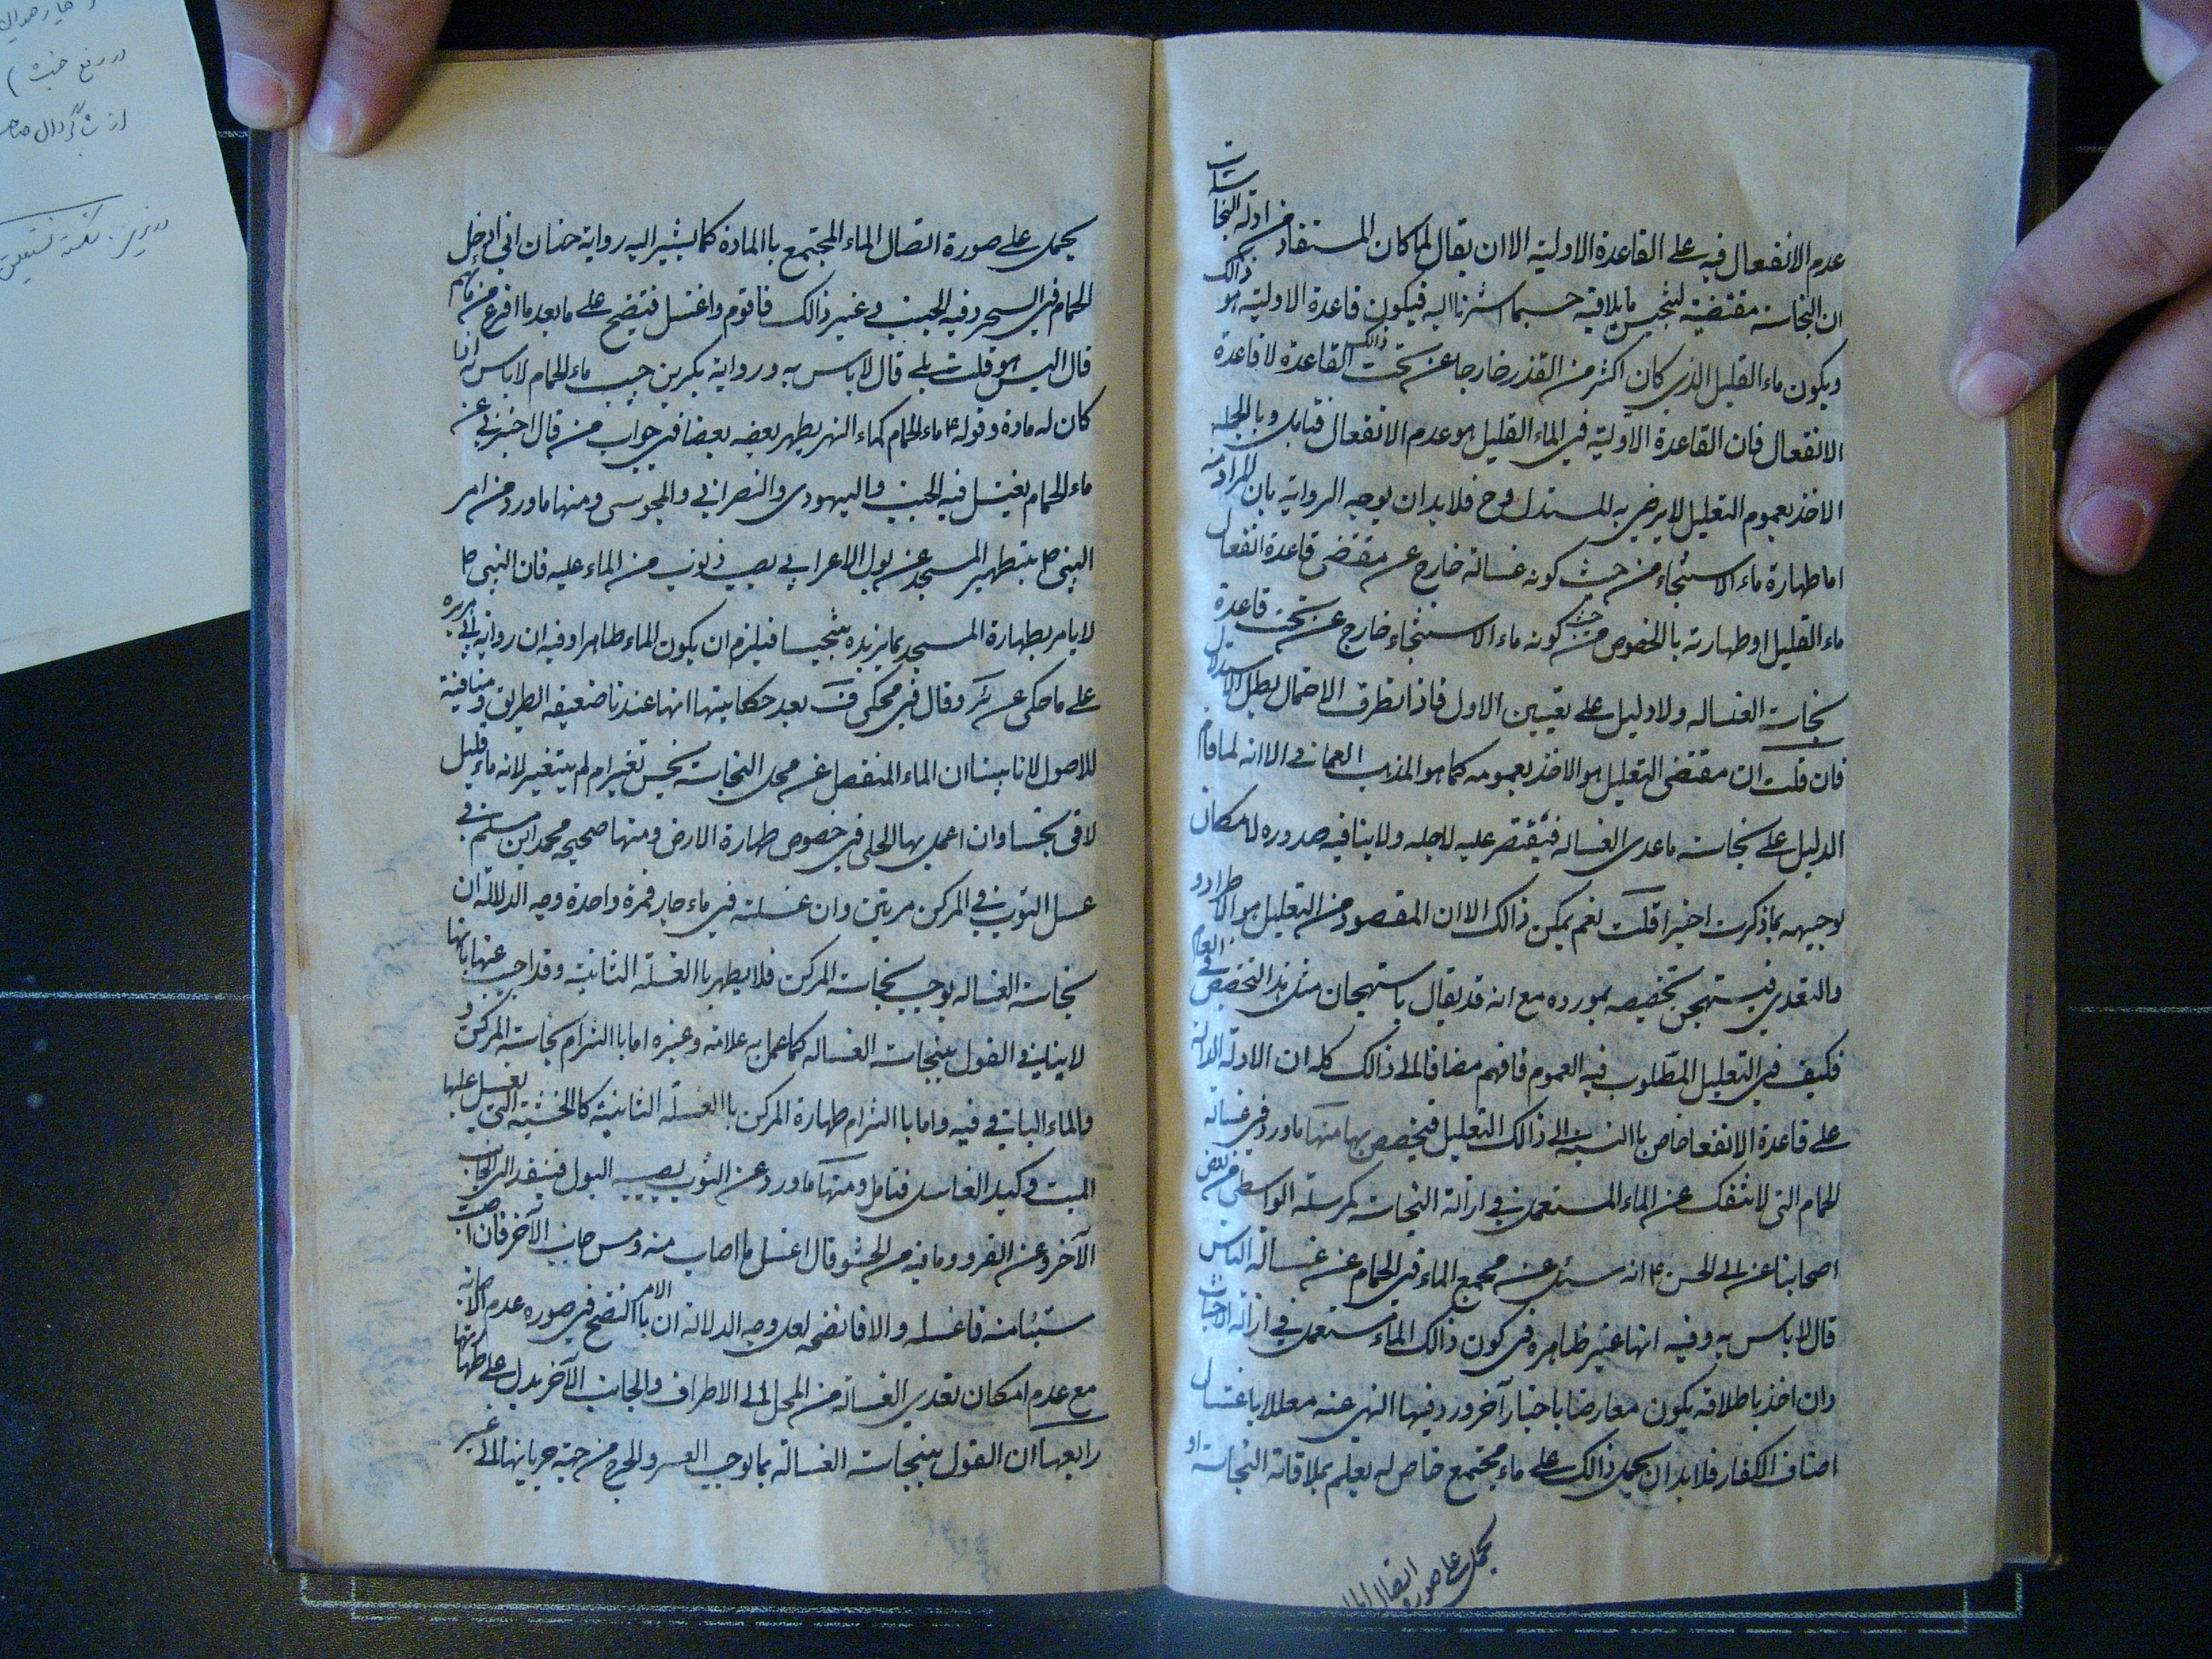 عدم الانفعال فيه على القاعدة الاولية الا ان يقال لما كان المستفاد من ادلة النجاسات
ان النجاسة مقتضية لتنجيس ما يلاقيه حسبما اشرنا اليه فيكون قاعدة الاولية هو ذالك
ويكون ماء القليل الذى كان اكثر من القذر خارجا عن تحت ذالك القاعدة لا قاعدة
الانفعال فان القاعدة الاولية في الماء القليل هو عدم الانفعال فتامل وبالجملة
الاخذ بعموم التعليل لا يرضى به المستدل وح فلا بد ان يوجه الرواية بان المراد منه
اما طهارة ماء الاستنجاء من حيث كونه غسالة خارج عن مقتضى قاعدة انفعال
ماء القليل او طهارته بالخصوص من حيث كونه ماء الاستنجاء خارج عن تحت قاعدة
نجاسة الغسالة ولا دليل على تعيين الاول فاذا تطرق الاحتمال بطل الاستدلال
فان قلت ان مقتضى التعليل هو الاخذ بعمومه كما هو المذهب العماني الا انه لما قام
الدليل على نجاسة ما عدى الغسالة فيقتصر عليه لاجله ولا ينافيه صدوره لامكان
توجيهه بما ذكرت اخيرا قلت نعم يمكن ذالك الا ان المقصود من التعليل هو الاطراد و
والتعدي فيستهجن تخصيصه بمورده مع انه قد يقال باستهجان مثل هذا التخصيص في العام
فكيف في التعليل المطلوب فيه العموم فافهم مضافا الى ذالك كله ان الادلة الدالة
على قاعدة الانفعا خاص باالنسبة الى ذالك التعليل فيخصص بها منها ما ورد في غسالة
الحمام التى لا تنفك عن الماء المستعمل في ازالة النجاسة كمرسلة الواسطى عن بعض
اصحابنا عن ابى الحسن ع انه سئل عن مجمع الماء في الحمام عن غسالة الناس
قال لا باس به وفيه انها غير ظاهره في كون ذالك الماء مستعمل في ازالة الاخباث
وان اخذ باطلاقه يكون معارضا باخبار آخر ورد فيها النهى عنه معللا باغتسال
اصناف الكفار فلا بد ان يحمل ذالك على ماء مجتمع خاص لم يعلم بملاقاة النجاسة او
يحمل على صورة اتصال الماء
يحمل على صورة اتصال الماء المجتمع باالمادة كما يشير اليه رواية حنان انى ادخل
الحمام في السحر وفيه الجنب وغير ذالك فاقوم واغتسل فينضح على ما بعد ما افرغ من مائهم
قال اليس هو قلت بلى قال لا باس به ورواية بكر بن حبيب ماء الحمام لا باس به اذا
كان له مادة وقوله ع ماء الحمام كماء النهر يطهر بعضه بعضا في جواب من قال اخبرني عن
ماء الحمام يغتسل فيه الجنب واليهودى والنصرانى والمجوسى ومنها ما ورد من امر
النبى ص بتطهير المسجد عن بول الاعرابي بصب ذنوب من الماء عليه فان النبى ص
لا يامر بطهارة المسجد بما يزيده تنجيسا فيلزم ان يكون الماء طاهرا وفيه ان رواية ابى هريره
على ما حكى عن وقال في محكى ف بعد حكايتها انها عندنا ضعيفه الطريق و منافية
للاصول لانا بينا ان الماء المنفصل عن محل النجاسة نجس تغير ام لم يتغير لانه ماء قليل
لاقى نجسا وان اعمل بها الحلى في خصوص طهارة الارض ومنها صحيحه محمد ابن مسلم في
غسل الثوب في المركن مرتين وان غسلته في ماء جار فمرة واحدة وجه الدلالة ان
نجاسة الغسالة يوجب نجاسة المركن فلا يطهر باالغسلة الثانية وقد اجيب عنها بانها
لا ينافى القول بنجاسة الغسالة كما عمل به علامة وغيره اما باالتزام نجاسة المركن و
والماء الباقي فيه واما باالتزام طهارة المركن باالغسلة الثانية كالخشبة التى يغسل عليها
الميت وكيد الغاسل فتامل ومنها ما ورد عن الثوب يصيبه البول فينفذ الى الجانب
الآخر وعن الفرو وما فيه من الحشو قال اغسل ما اصاب منه ومس جانب الآخر فان اصبت
شيئا منه فاغسله والا فانضحه لعل وجه الدلالة ان الامر باالنضح في صوره عدم الاصابة
مع عدم امكان تعدي الغسالة من المحل الى الاطراف والجانب الآخر يدل على طهارتها
رابعها ان القول بنجاسة الغسالة بما يوجب العسر والحرج من جهة جريانها الى غير